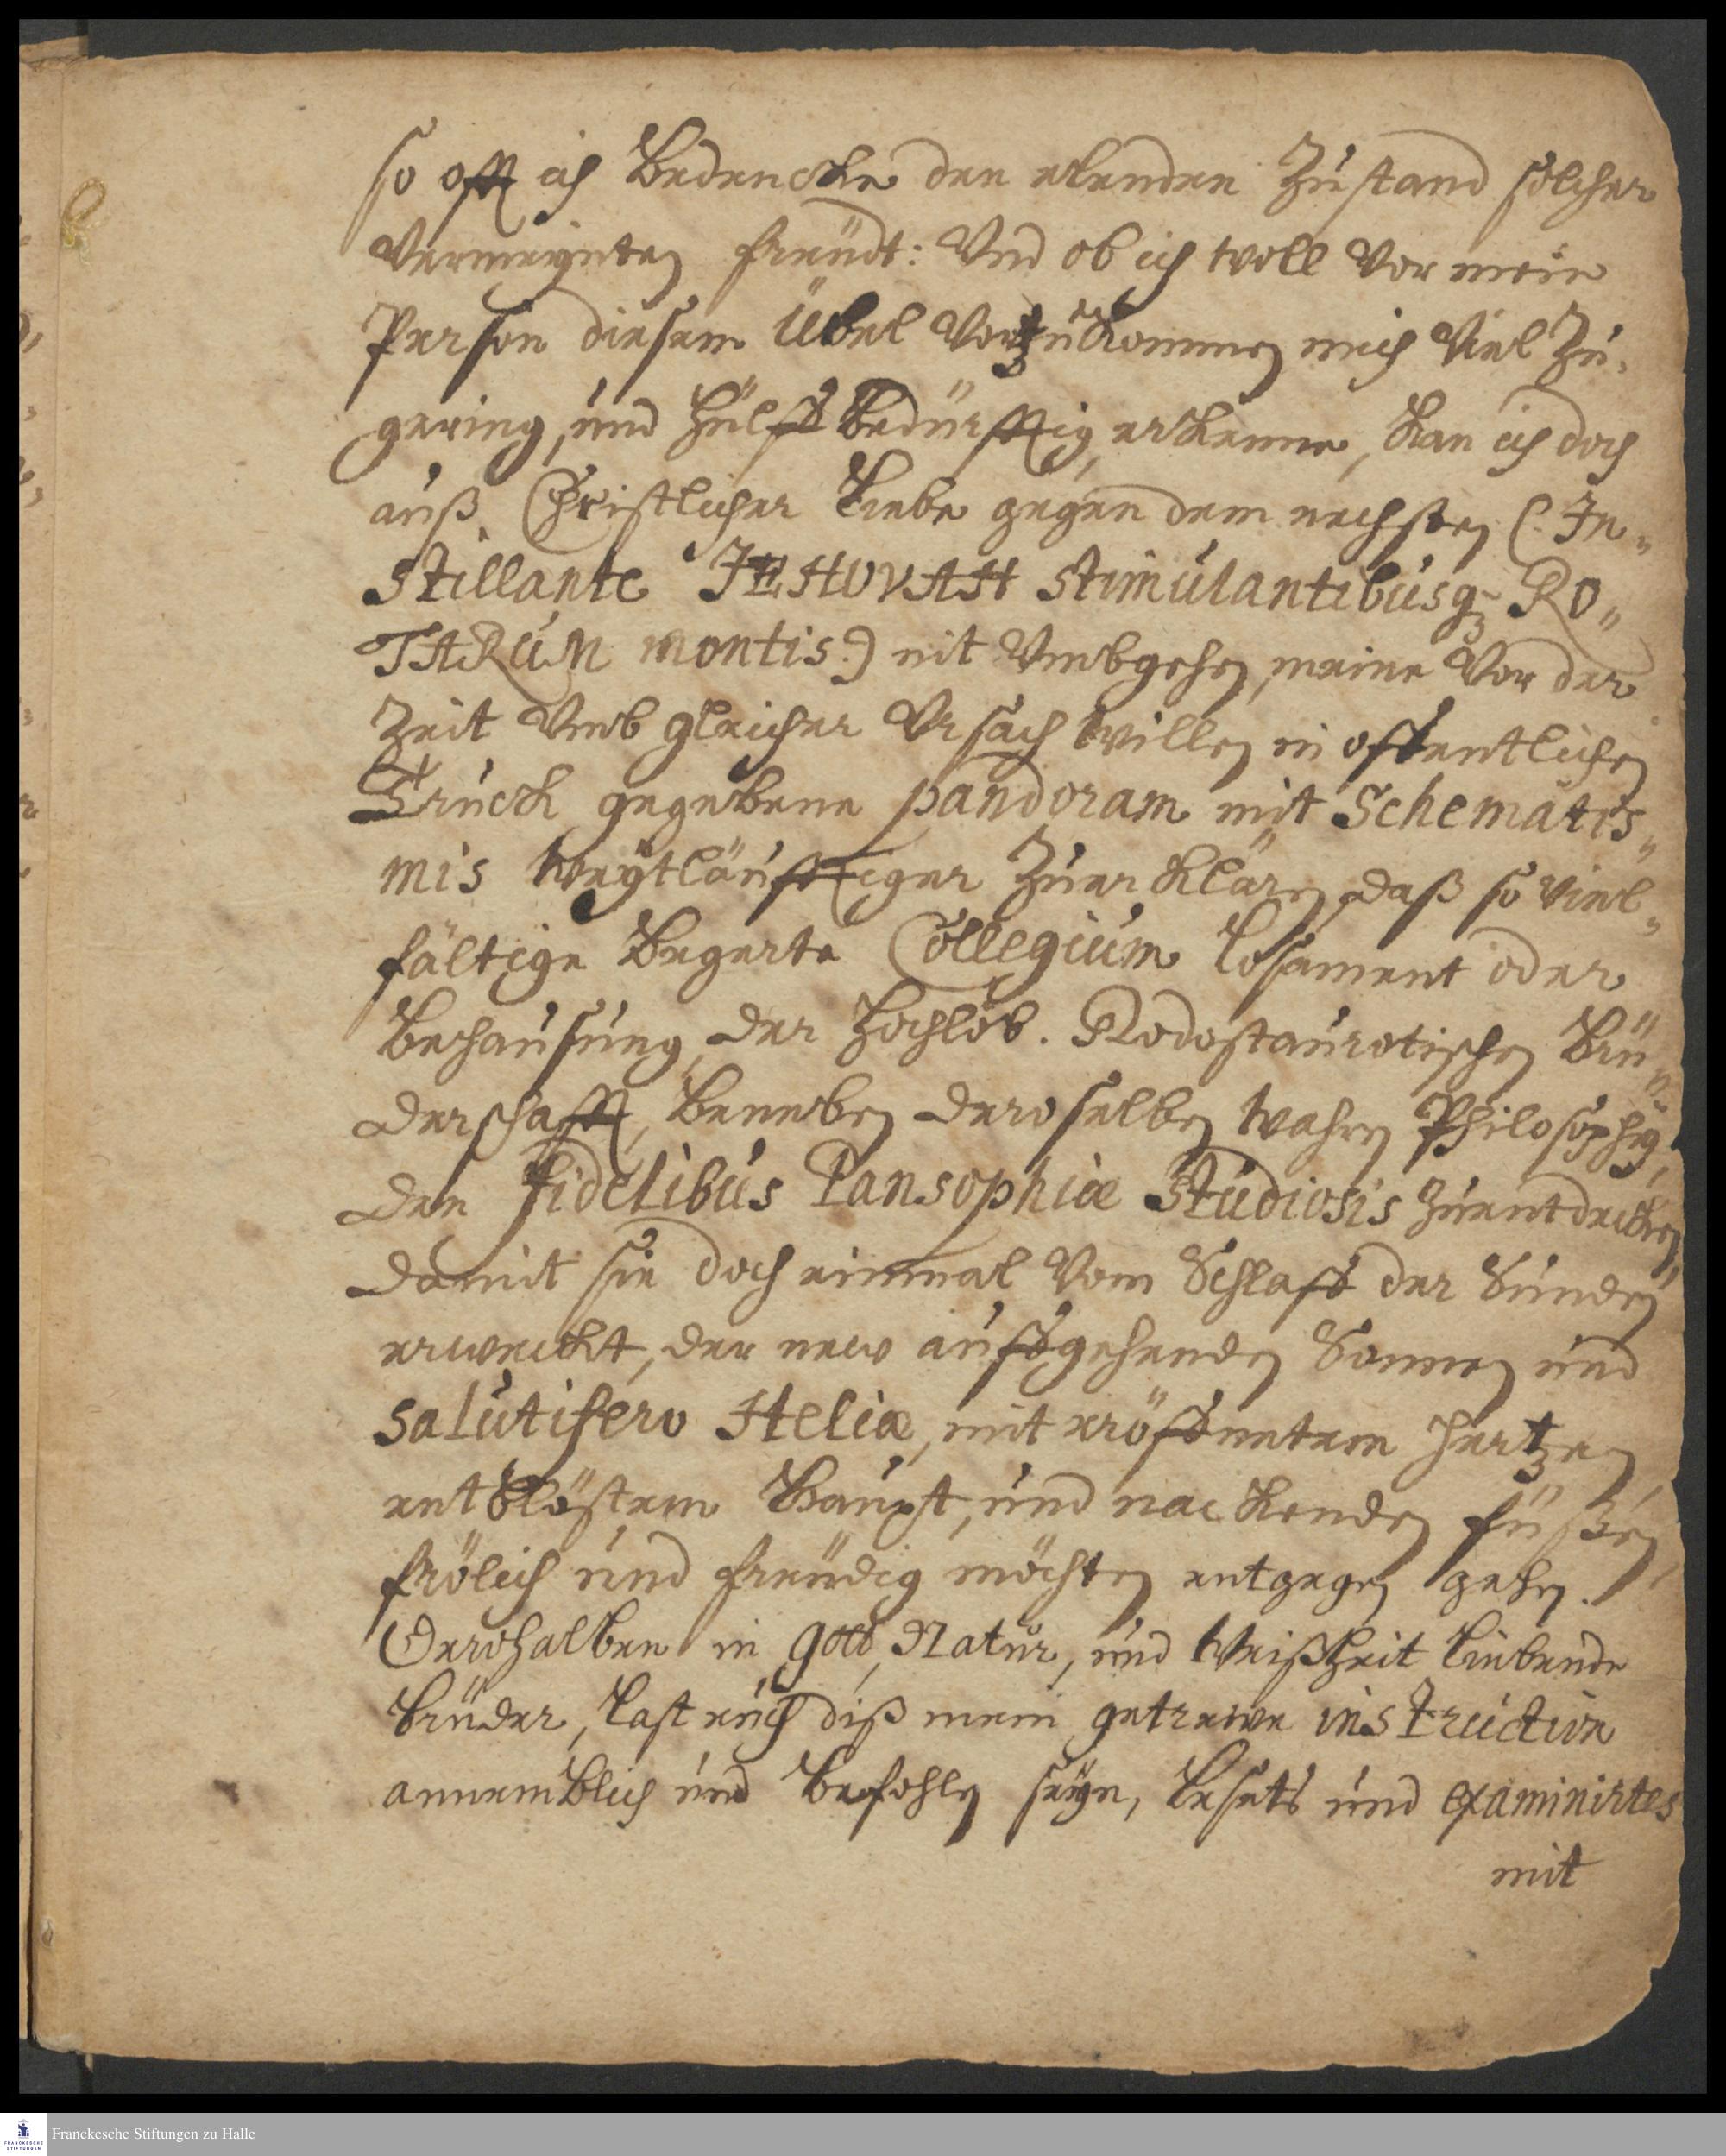 so offt ich Bedencke den elenden Zustand solcher
Vermeynten freudt: Vnd ob ich woll Vor mein
Person diesem Übel Vorzukommen mich Viel Zu
gering, und Hülffbedürfftig, erkenne, Kan ich doch
auß Christlicher Liebe gegen dem nechsten (: In„
stillante JEHOVAH stimulantibusq3 RO„
TARUM montis:) nit Vmbgehen, meine Vor der
Zeit Vmb gleicher Vrsach willen in offentlichen
Truck gegebene pandoram mit Schematis„
mis weytläufftiger Zuerklären, daß so Viel„
fältige Begerte Collegium Losament oder
Behausung der Hochlöb. Rodostaurotischen Brü„
derschafft, Beneben deroselben wahren Philosophy,
den fidelibus Pansophiæ Studiosis Zuentdecken,
damit sie doch einmal Vom Schlaff der Sünden
erweckt, der new auffgehenden Sonnen und
salutifero Heliæ, mit eröffnetem Hertzen
entblöstem Haupt, und nackenden füßen,
frölich und freudig möchten entgegen gehen.
Derohalben in gott, Natur, und Weißheit Liebende
Brüder, Last euch diß mein getrewe instruction
annemblich und Befohlen seyn, Lesets und examinirtes
mit
Franckesche Stiftungen zu Halle
FRANCKESCHE
STIFTUNGEN